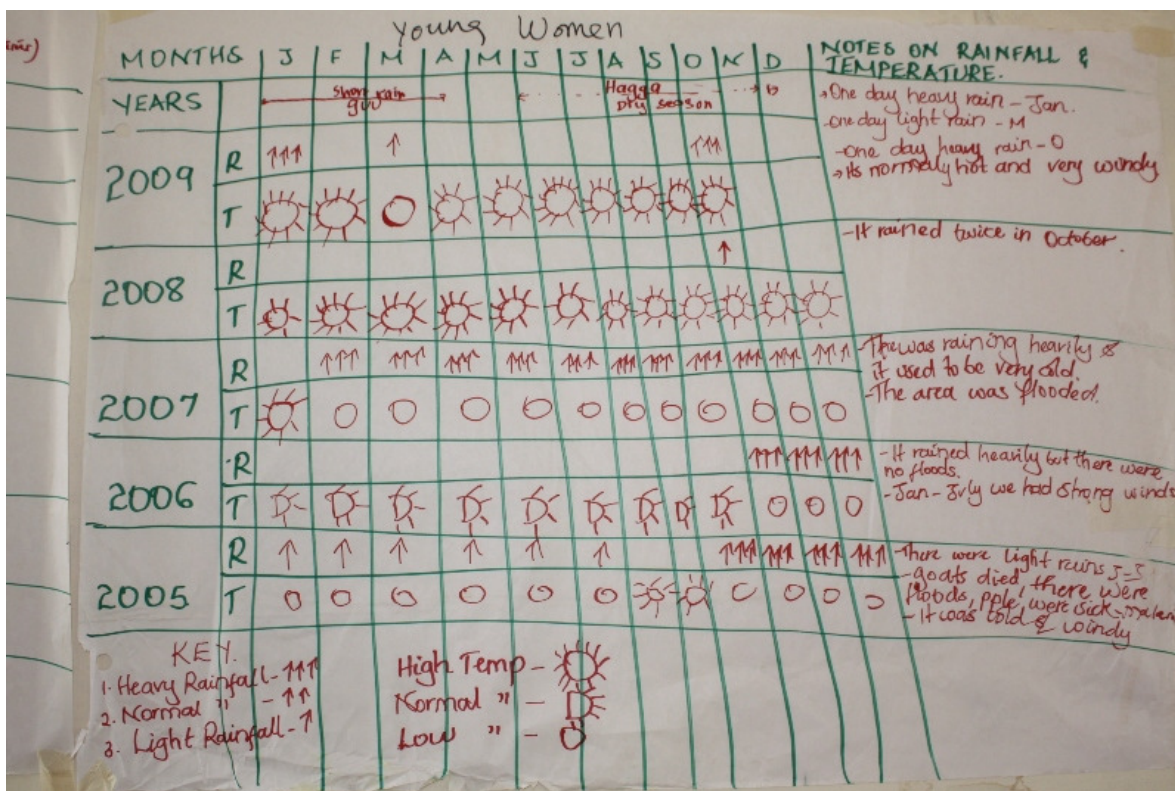 Young Women
MONTHS J F M A M J J A S O N D NOTES ON RAINFALL &
TEMPERATURE.
YEARS Short rain Hagga
guu Dry season
→One day heavy rain - Jan.
-one day light rain - M
-One day heavy rain - O
→Its normally hot and very windy
2009 R
T
-It rained twice in October.
2008 R
T
-The was raining heavily &
it used to be very cold.
-The area was flooded.
2007 R
T
-It rained heavily but there were
no floods.
-Jan - July we had strong winds
2006 R
T
-There were light rains J-J
-goats died, there were
floods, pple, were sick
-It was cold & windy
2005 R
T
KEY.
1. Heavy Rainfall - ↑↑↑
2. Normal " - ↑↑
3. Light Rainfall - ↑
High Temp -
Normal " -
Low " -